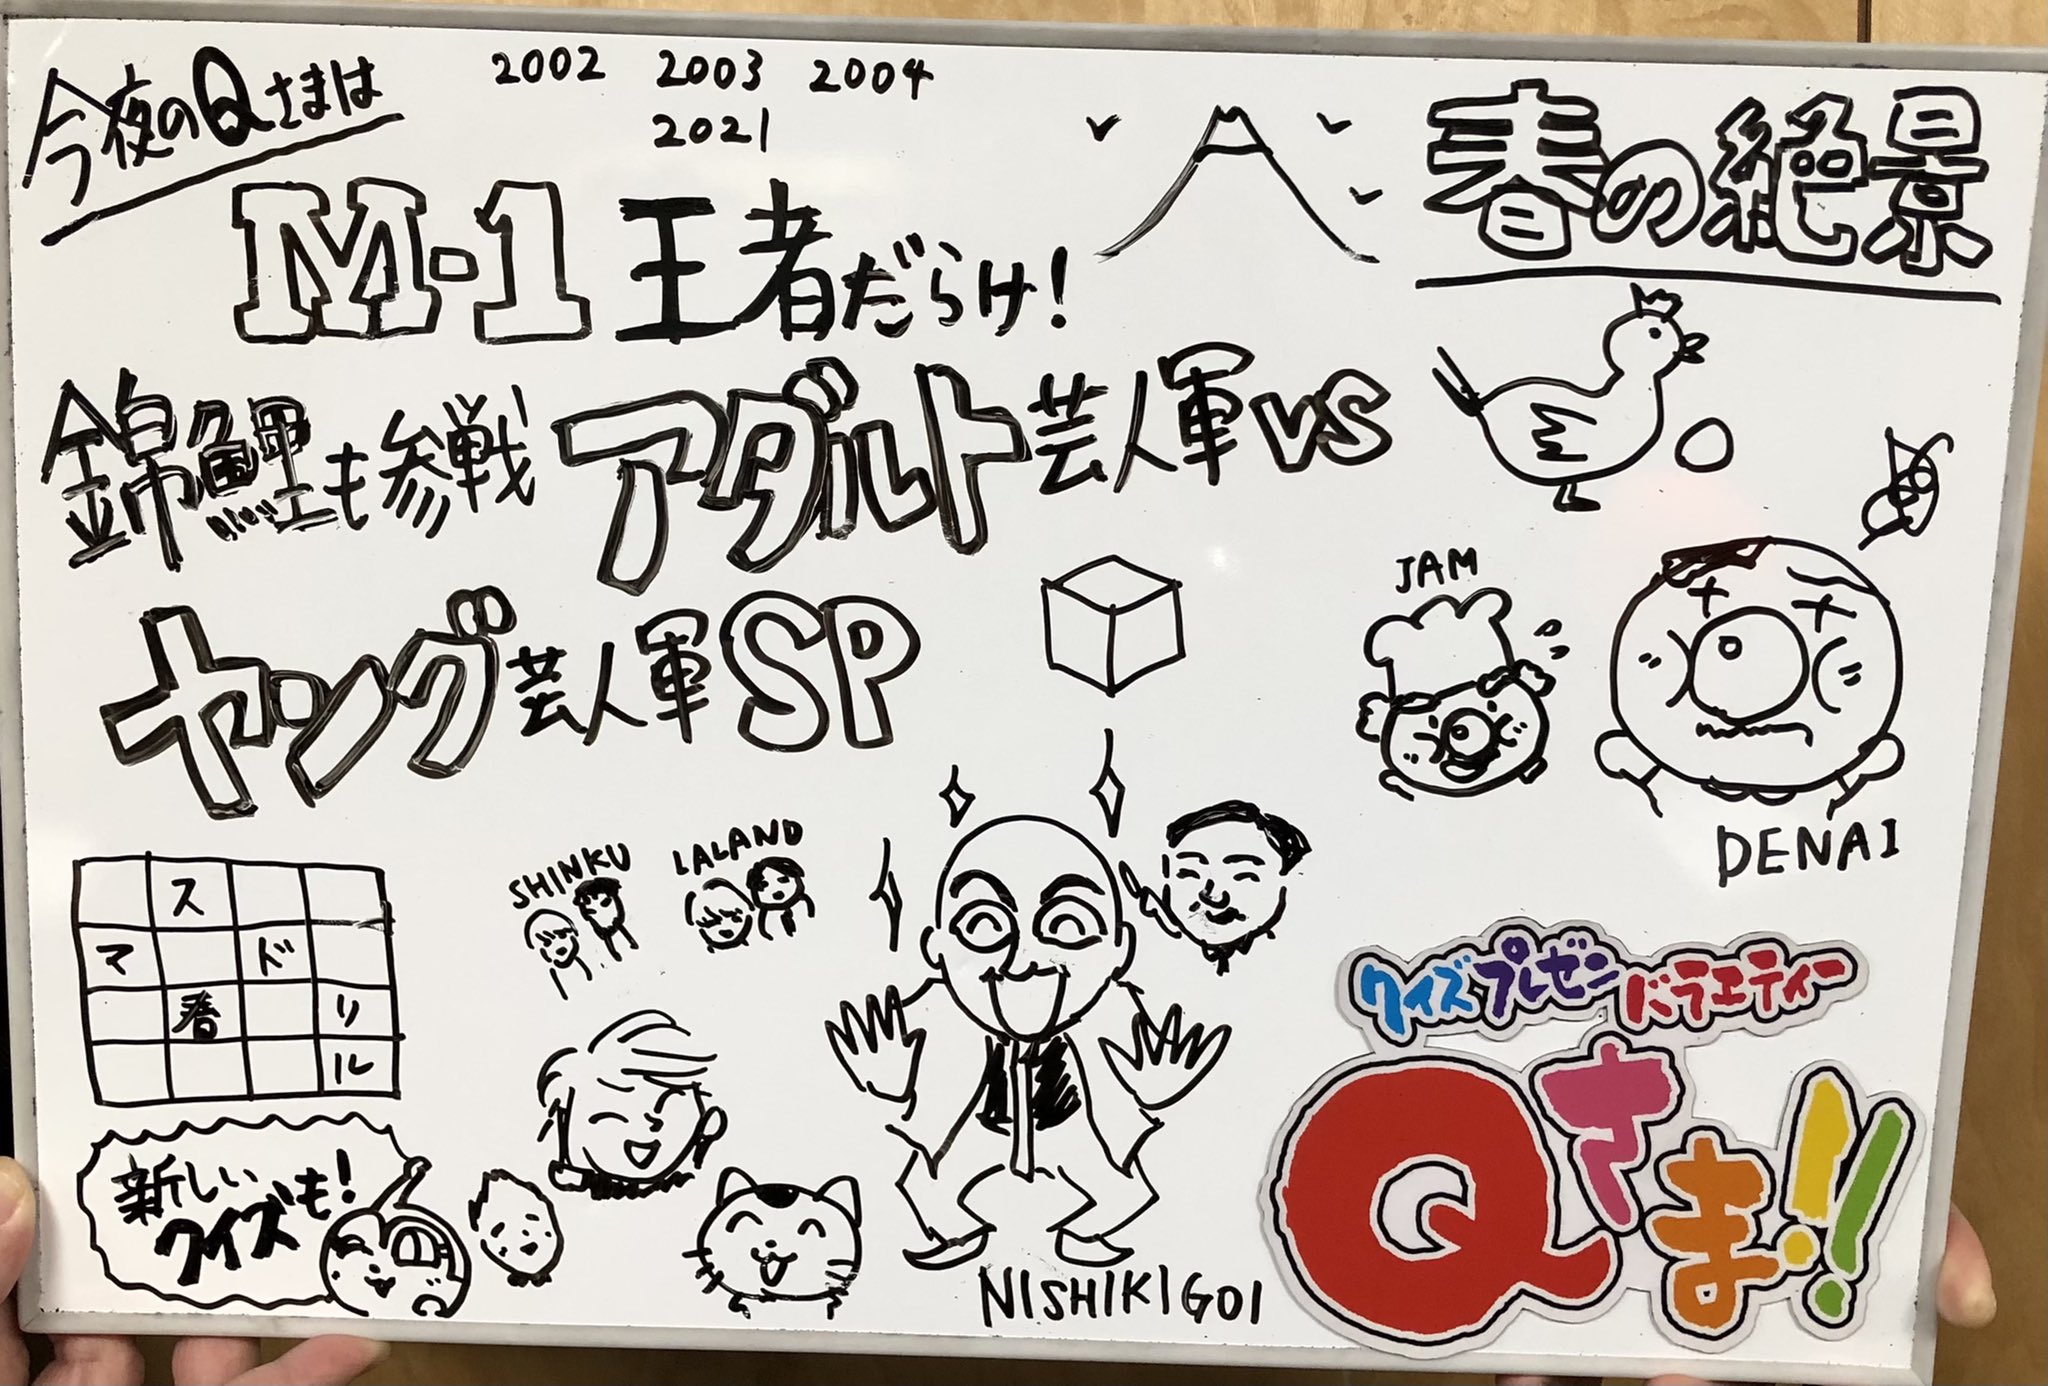 今夜のQさまは
2002 2003 2004
2021
M-1王者だらけ!
春の絶景
錦鯉も参戦アダルト芸人軍VS
ヤング芸人軍SP
JAM
DENAI
SHINKU
LALAND
ス
マ ド
春 リ
ル
新しい
クイズも!
NISHIKIGOI
クイズプレゼンバラエティー
Qさま!!